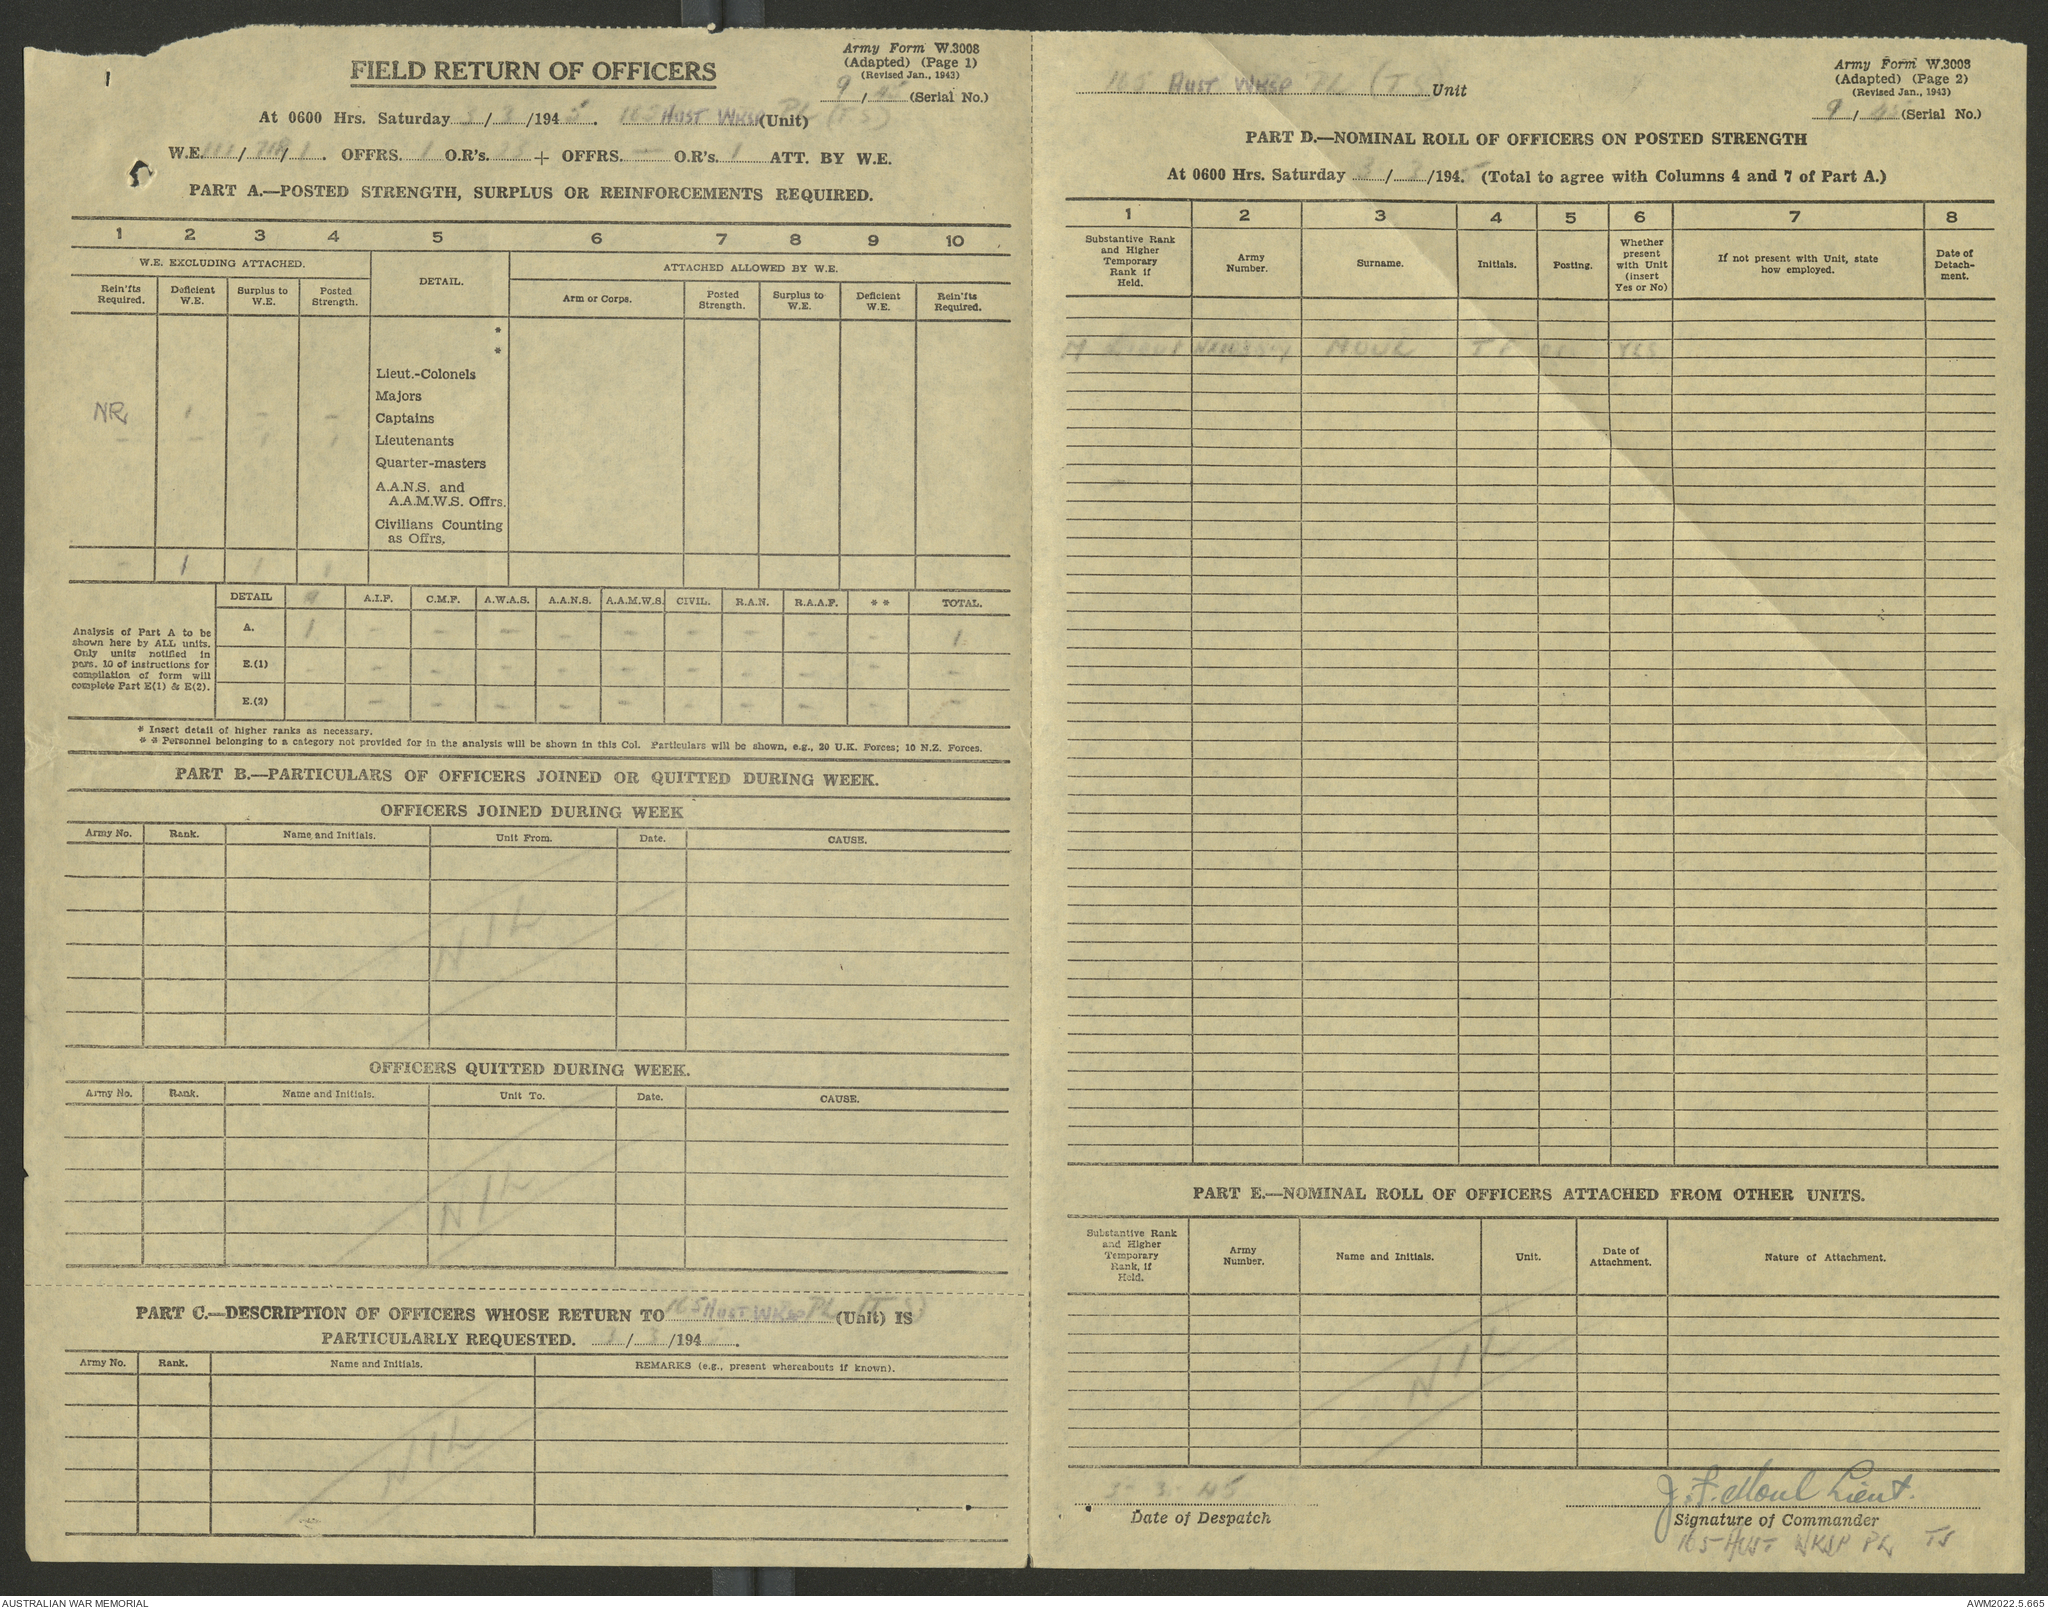 1
Army Form W.3008
FIELD RETURN OF OFFICERS
(Adapted) (Page 1)
(Revised Jan., 1943)
9 / 45 (Serial No.)
At 0600 Hrs. Saturday 3 / 3 /194 5. 165 AUST WKSP PL (T S) (Unit)
W.E. 111/ / 1. OFFRS. 1 O.R's. + OFFRS. — O.R's. 1 ATT. BY W.E.
5
PART A.—POSTED STRENGTH, SURPLUS OR REINFORCEMENTS REQUIRED.
1 2 3 4 5 6 7 8 9 10
W.E. EXCLUDING ATTACHED. DETAIL. ATTACHED ALLOWED BY W.E.
Rein'fts Required. Deficient W.E. Surplus to W.E. Posted Strength. Arm or Corps. Posted Strength. Surplus to W.E. Deficient W.E. Rein'fts Required.
*
*
Lieut.-Colonels
Majors
NR 1 – – Captains
– – 1 1 Lieutenants
Quarter-masters
A.A.N.S. and
A.A.M.W.S. Offrs.
Civilians Counting
as Offrs.
– 1 1 1
DETAIL A.I.F. C.M.F. A.W.A.S. A.A.N.S. A.A.M.W.S. CIVIL. R.A.N. R.A.A.F. * * TOTAL.
Analysis of Part A to be
shown here by ALL units.
Only units notified in
para. 10 of instructions for
compilation of form will
complete Part E(1) & E(2).
A. 1 – – – – – – – – – 1
E.(1) – – – – – – – – – – –
E.(2) – – – – – – – – – – –
* Insert detail of higher ranks as necessary.
* * Personnel belonging to a category not provided for in the analysis will be shown in this Col. Particulars will be shown, e.g., 20 U.K. Forces; 10 N.Z. Forces.
PART B.—PARTICULARS OF OFFICERS JOINED OR QUITTED DURING WEEK.
OFFICERS JOINED DURING WEEK
Army No. Rank. Name and Initials. Unit From. Date. CAUSE.
NIL
OFFICERS QUITTED DURING WEEK.
Army No. Rank. Name and Initials. Unit To. Date. CAUSE.
NIL
PART C.—DESCRIPTION OF OFFICERS WHOSE RETURN TO 165 AUST WKSP PL (T S) (Unit) IS
PARTICULARLY REQUESTED. 3 / 3 /194 5.
Army No. Rank. Name and Initials. REMARKS (e.g., present whereabouts if known).
NIL
165 AUST WKSP PL (T S) Unit
Army Form W.3008
(Adapted) (Page 2)
(Revised Jan., 1943)
9 / 45 (Serial No.)
PART D.—NOMINAL ROLL OF OFFICERS ON POSTED STRENGTH
At 0600 Hrs. Saturday 3 / 3 /194 5 (Total to agree with Columns 4 and 7 of Part A.)
1 2 3 4 5 6 7 8
Substantive Rank and Higher Temporary Rank if Held. Army Number. Surname. Initials. Posting. Whether present with Unit (insert Yes or No) If not present with Unit, state how employed. Date of Detachment.
LIEUT MOUL J F YES
PART E.—NOMINAL ROLL OF OFFICERS ATTACHED FROM OTHER UNITS.
Substantive Rank and Higher Temporary Rank, if Held. Army Number. Name and Initials. Unit. Date of Attachment. Nature of Attachment.
NIL
3-3-45
Date of Despatch
J. F. Moul Lieut.
Signature of Commander
165 AUST WKSP PL TS
AUSTRALIAN WAR MEMORIAL
AWM2022.5.665